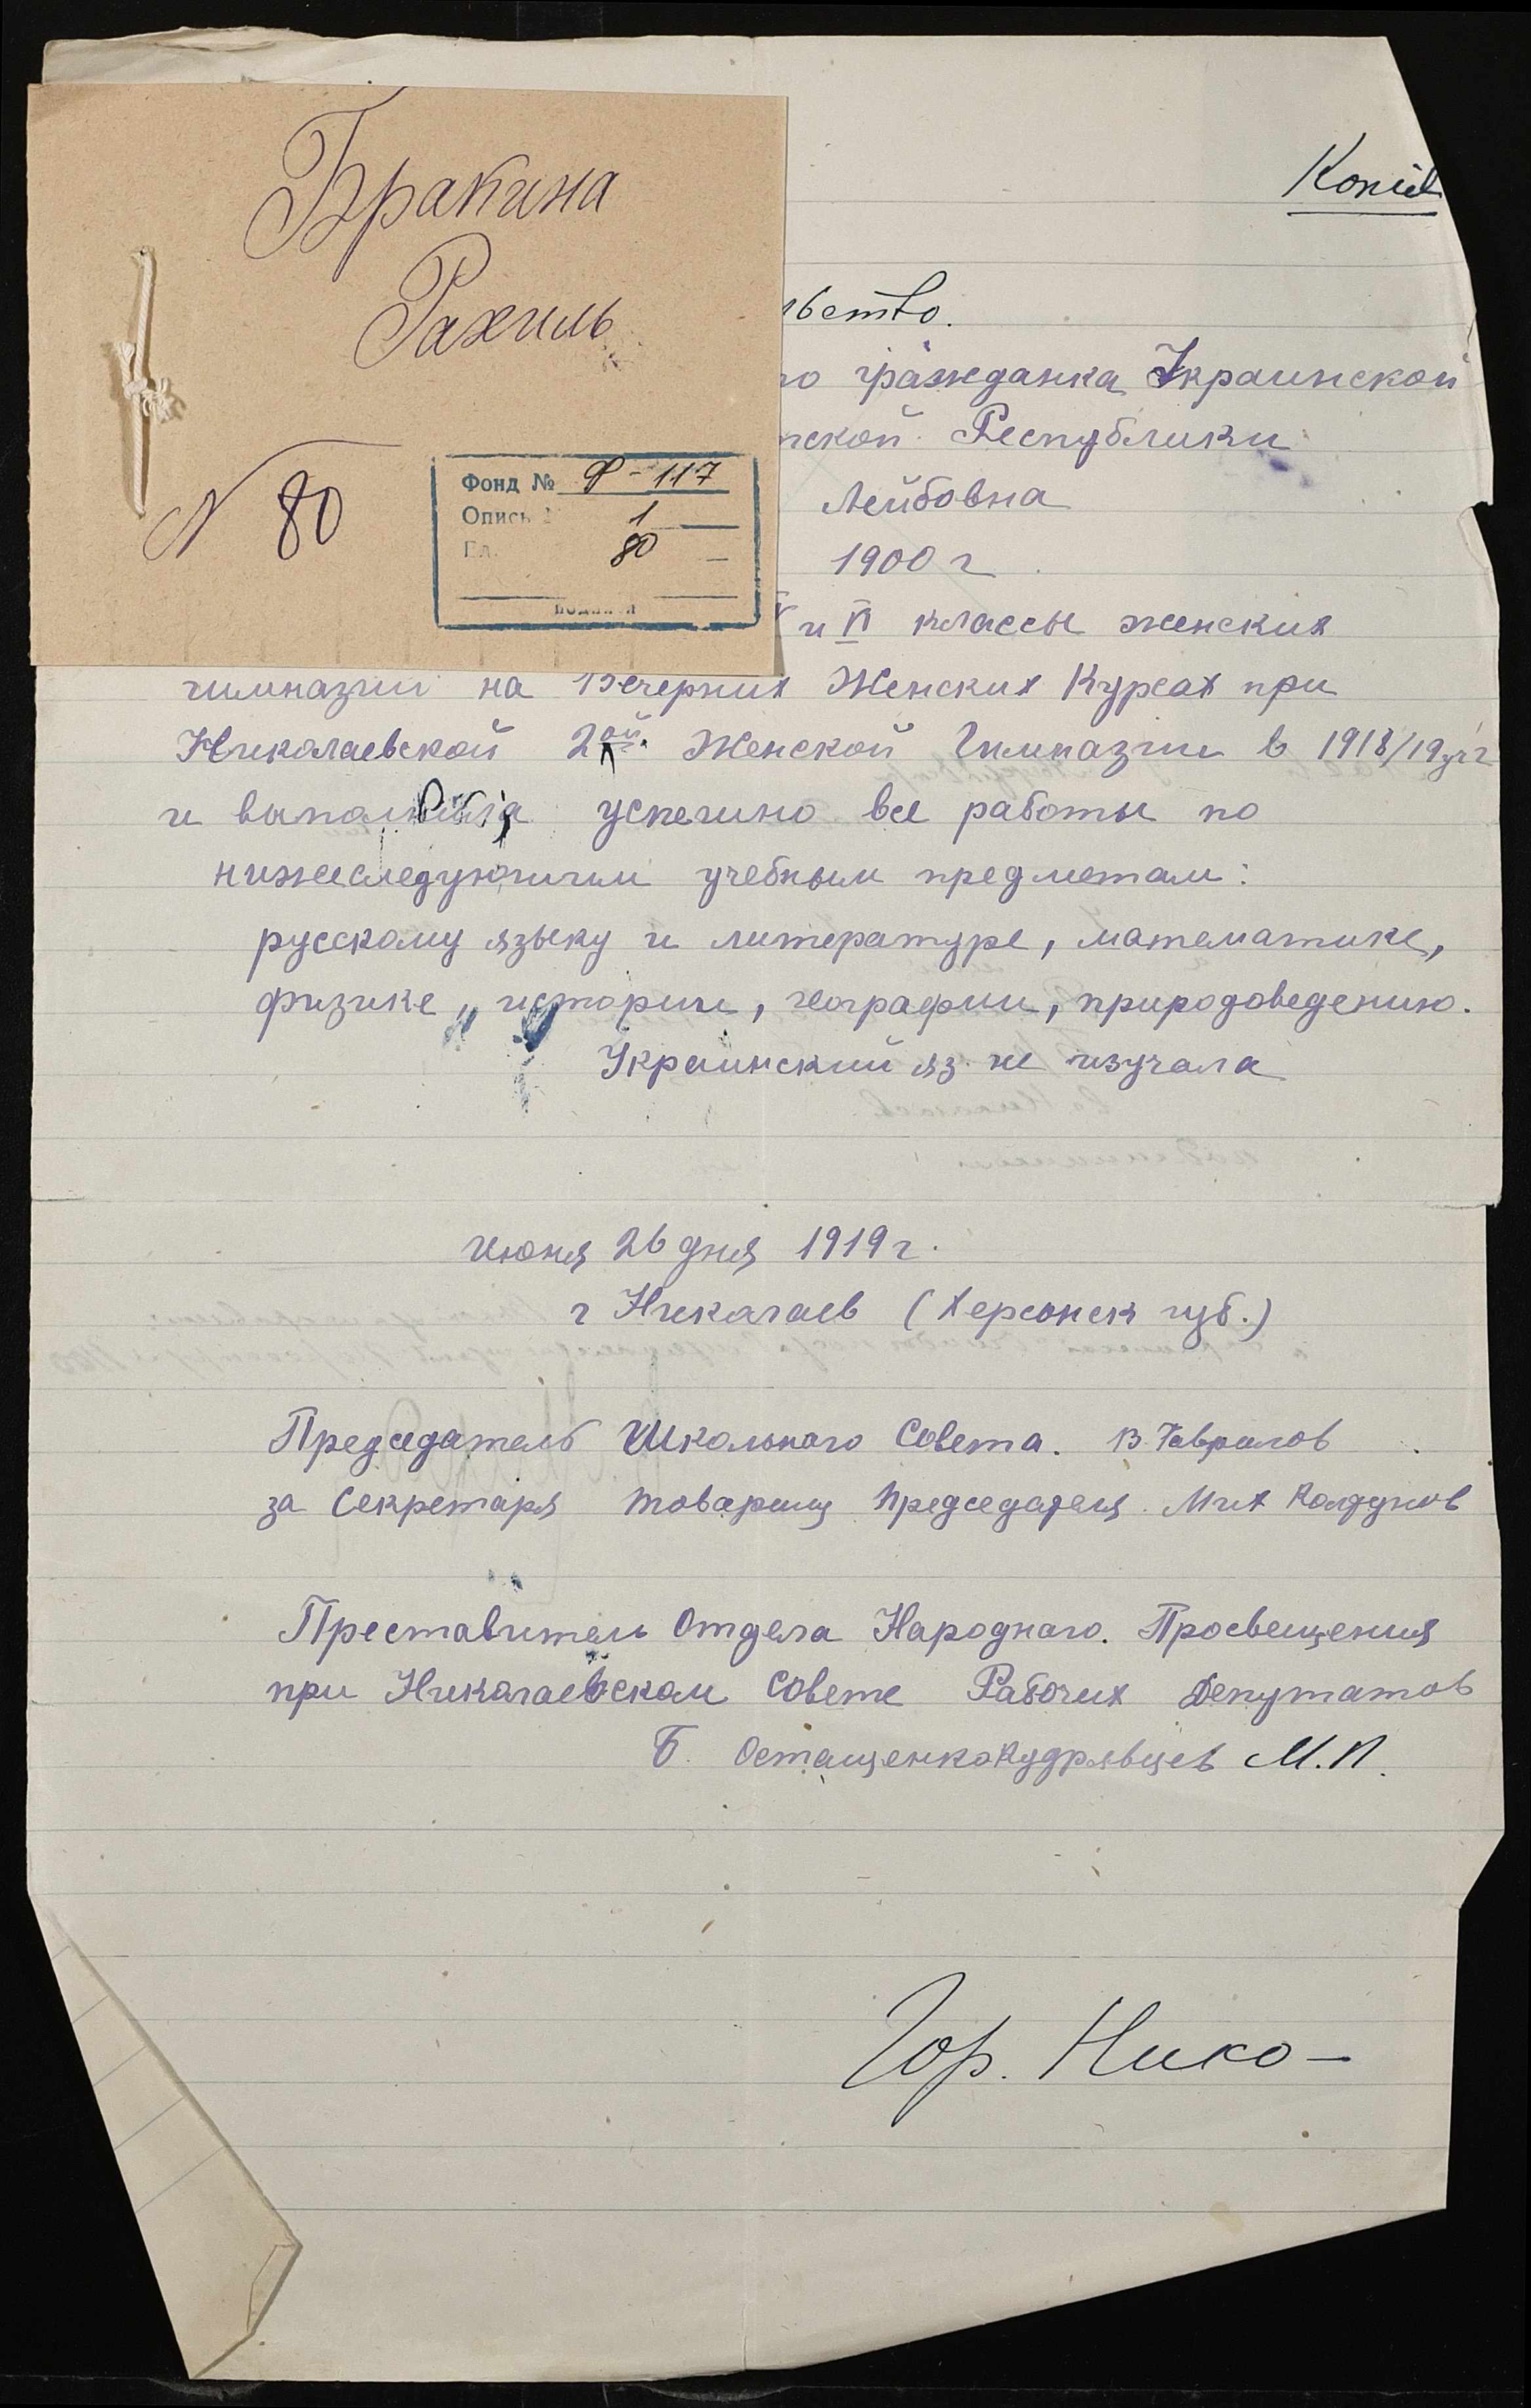 Бракина
Рахиль
N 80
Фонд № Ф-117
Опись 1
80
Копия
льство.
гражданка Украинской
тской Республики
Лейбовна
1900 г
и VI классы женских
гимназий на Вечерних Женских Курсах при
Николаевской 2ой Женской Гимназии в 1918/19 уч г
и выполнила успешно все работы по
нижеследующим учебным предметам:
русскому языку и литературе, математике,
физике, истории, географии, природоведению.
Украинский яз. не изучала
Июня 26 дня 1919 г.
г Николаев (Херсонск губ.)
Председатель Школьнаго Совета. В. Гаврилов
за Секретаря товарищ Председателя Мих Колдунов
Преставитель Отдела Народнаго. Просвещения
при Николаевском Совете Рабочих Депутатов
Б. ОстащенкоКудрявцев М.П.
Гор. Нико-